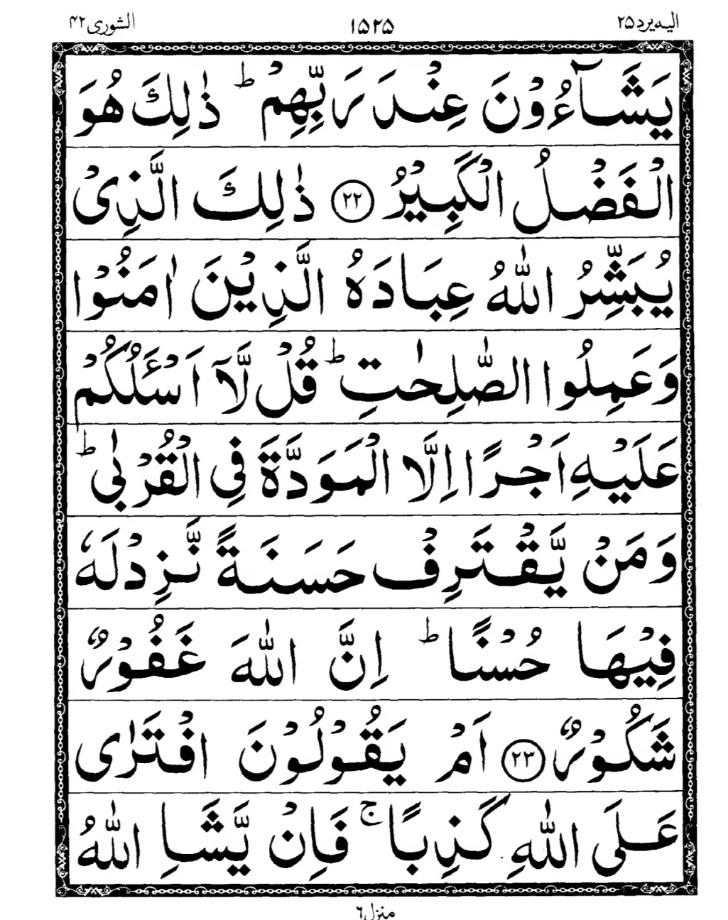 اليه يرد ۲۵ ۱۵۲۵ الشورى ۴۲
يَشَآءُوْنَ عِنْدَ رَبِّهِمْ ؕ ذٰلِكَ هُوَ
الْفَضْلُ الْكَبِيْرُ ﴿۲۲﴾ ذٰلِكَ الَّذِىْ
يُبَشِّرُ اللّٰهُ عِبَادَهُ الَّذِيْنَ اٰمَنُوْا
وَعَمِلُوا الصّٰلِحٰتِ ؕ قُلْ لَّاۤ اَسْئَلُكُمْ
عَلَيْهِ اَجْرًا اِلَّا الْمَوَدَّةَ فِى الْقُرْبٰى ؕ
وَمَنْ يَّقْتَرِفْ حَسَنَةً نَّزِدْ لَهٗ
فِيْهَا حُسْنًا ؕ اِنَّ اللّٰهَ غَفُوْرٌ
شَكُوْرٌ ﴿۲۳﴾ اَمْ يَقُوْلُوْنَ افْتَرٰى
عَلَى اللّٰهِ كَذِبًا ۚ فَاِنْ يَّشَاِ اللّٰهُ
منزل ۶